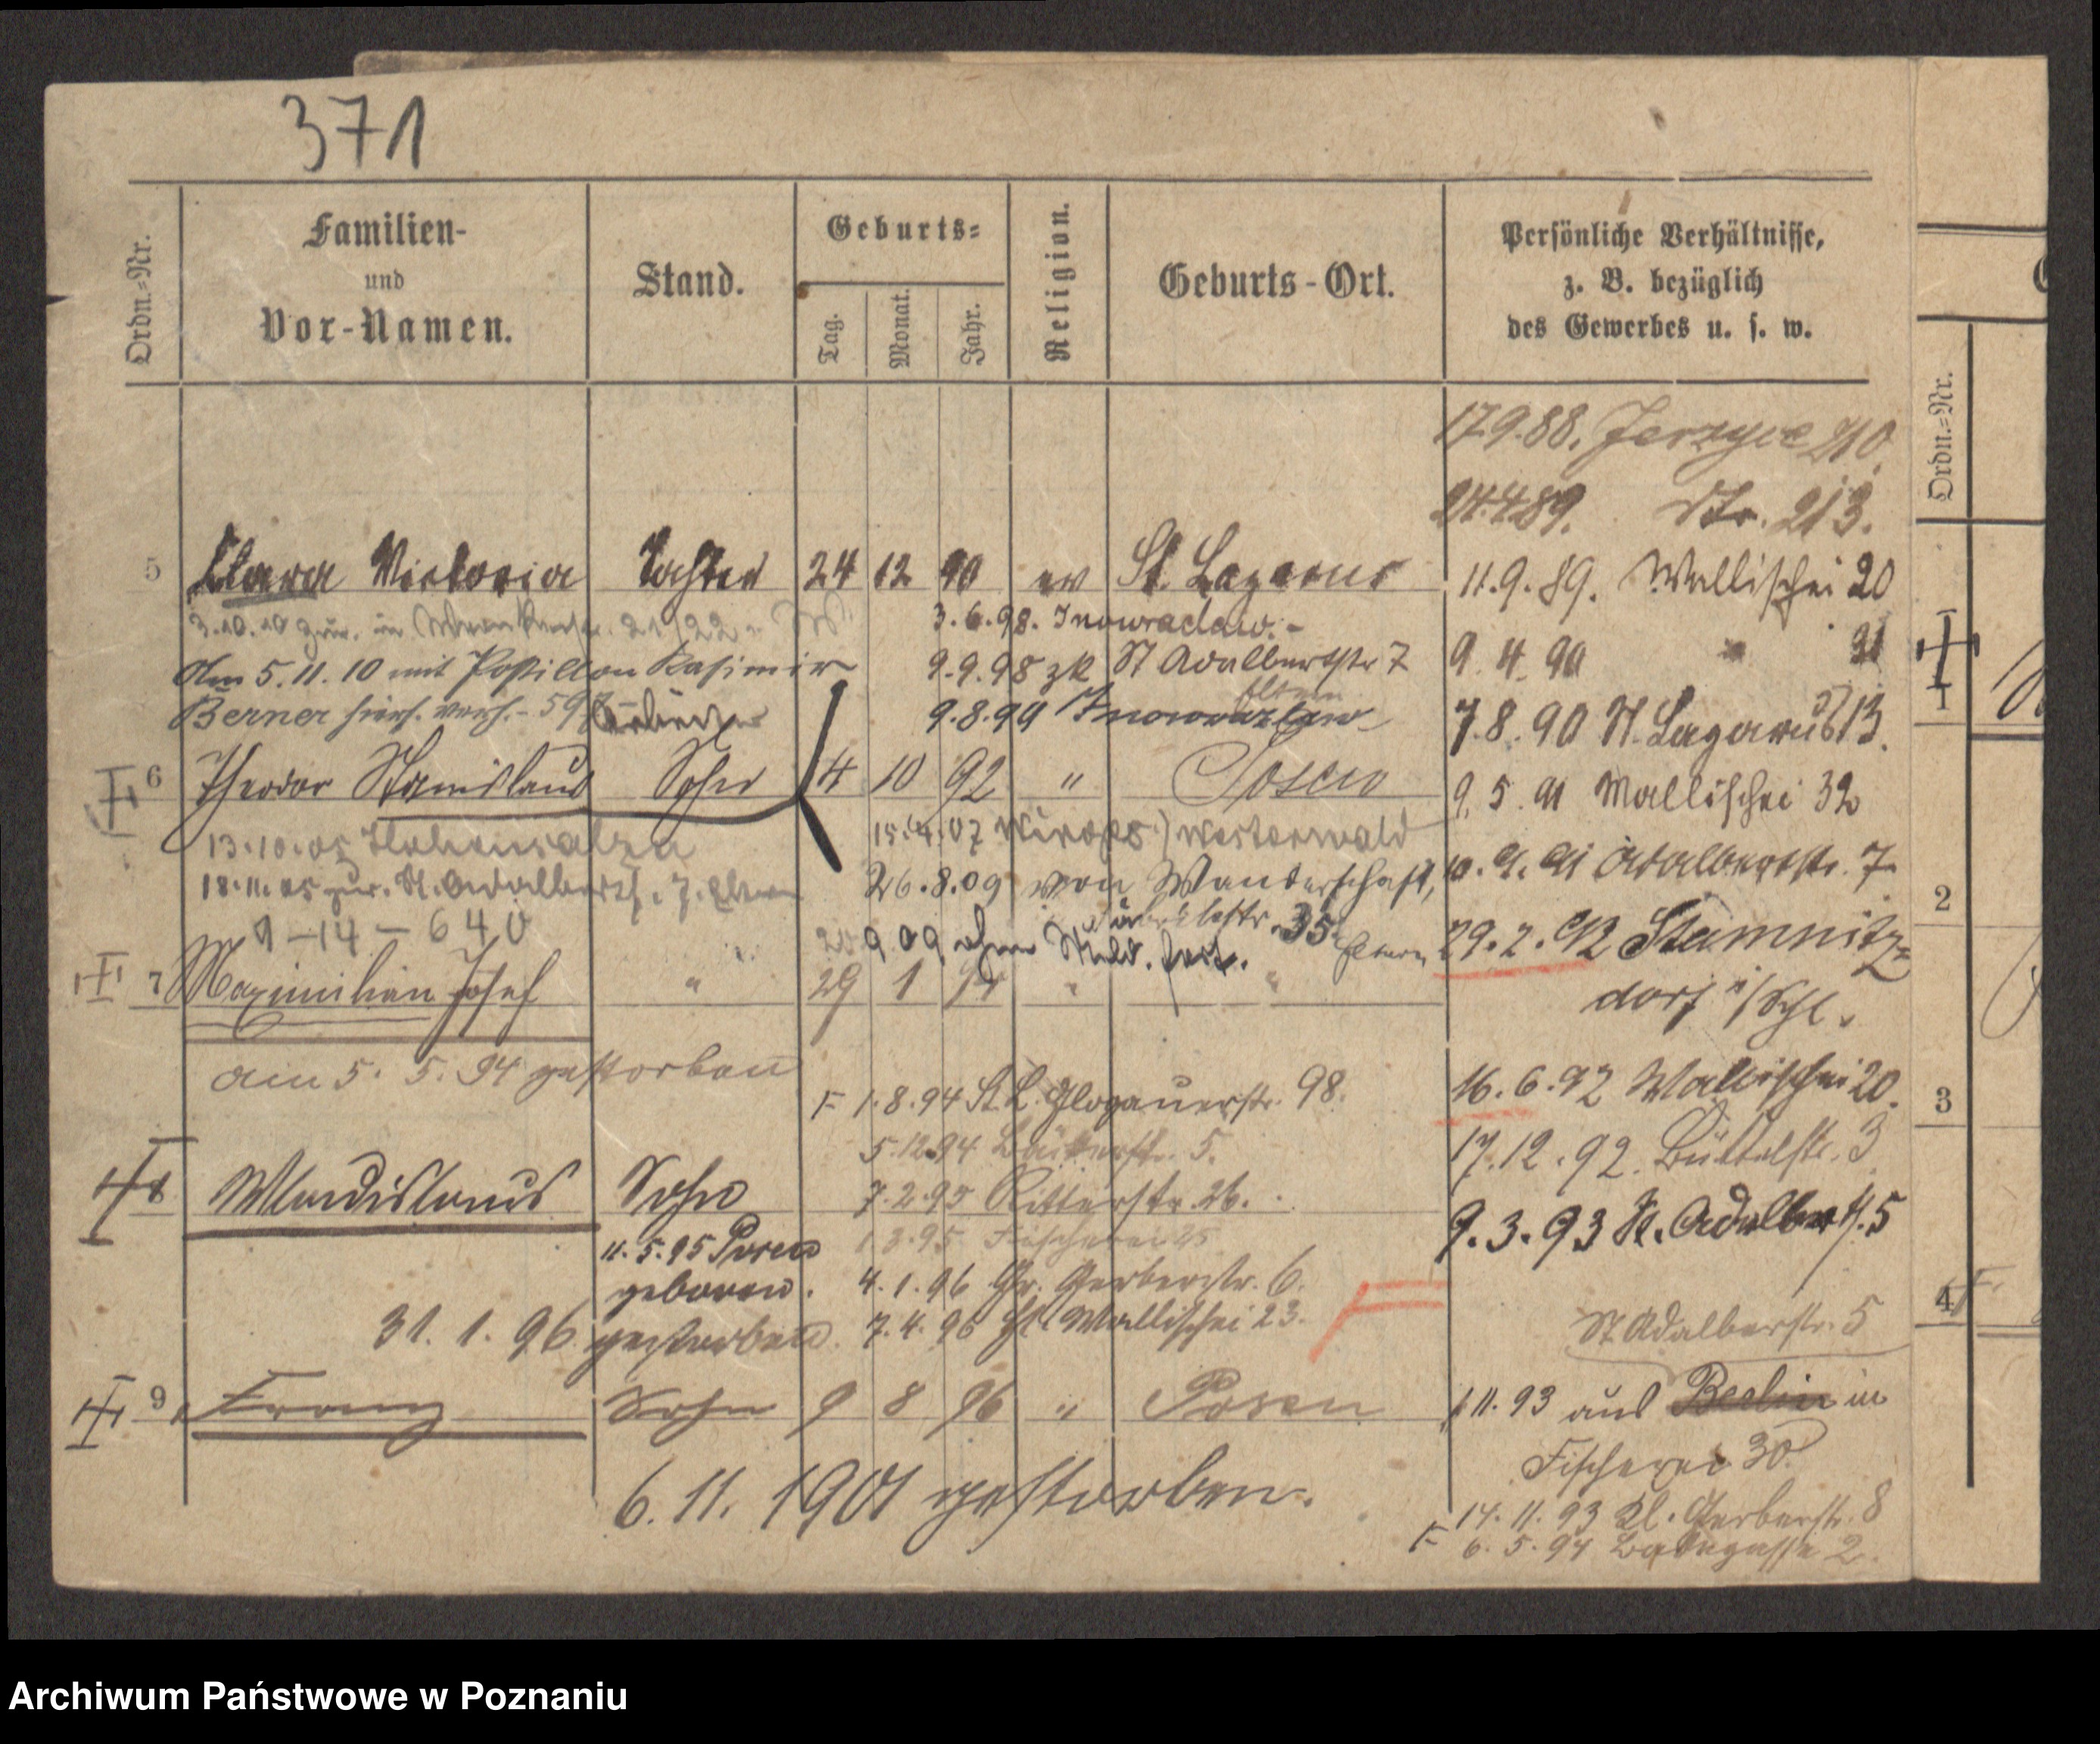 371
Ordn.-Nr.
Familien-
und
Vor-Namen.
Stand.
Geburts-
Tag.
Monat.
Jahr.
Religion.
Geburts-Ort.
Persönliche Verhältnisse,
z. B. bezüglich
des Gewerbes u. s. w.
17.9.88. Jerzyce 210.
24.4.89. Str. 213.
5 Clara Victoria Tochter 24 12 90 ev St. Lazarus
11.9.89. Wallischei 20
3.10.10 zur. in 21/22
3.6.98. Inowraclaw.-
Am 5.11.10 mit Postillon Kasimir
9.9.98 zk St Adalbertstr 7
9.4.90 " 21
Berner hiers. verh. - 59
Eltern
9.8.99 Inowrazlaw
7.8.90 St. Lazarus 13.
6 Theodor Stanislaus Sohn 4 10 92 " Posen
9.5.91 Wallischei 32
13.10.05 Hohensalza
15.4.07 Westerwald
18.11.05 zur. St. Adalbertstr. 7. Eltern
26.8.09 von Wanderschaft,
10.9.91 Adalbertstr. 7
9-14-640
35 Eltern
9 09 ohne Meld. fort.
29.2.92 Stamnitz-
dorf i/Schl.
7 Maximilian Josef " 29 1 94 " "
am 5. 5. 94 gestorben
F 1.8.94 St. L. Glogauerstr. 98.
16.6.92 Wallischei 20.
5.12.94 Bäckerstr. 5.
17.12.92. Büttelstr. 3
8 Wladislaus Sohn
7.2.95 Ritterstr. 26.
9.3.93 St. Adalbertst. 5
11.5.95 Posen
geboren.
1.3.95 Fischerei 25
4.1.96 Gr. Gerberstr. 6.
31. 1. 96 gestorben.
7.4.96 Wallischei 23.
St Adalberstr. 5
9 Franz Sohn 9 8 96 " Posen
1.11.93 aus Berlin in
Fischerei 30
6. 11. 1901 gestorben.
14.11.93 Kl. Gerberstr. 8
F 6.5.94 Badegasse 2.
Ordn.-Nr.
1
2
3
4
Archiwum Państwowe w Poznaniu